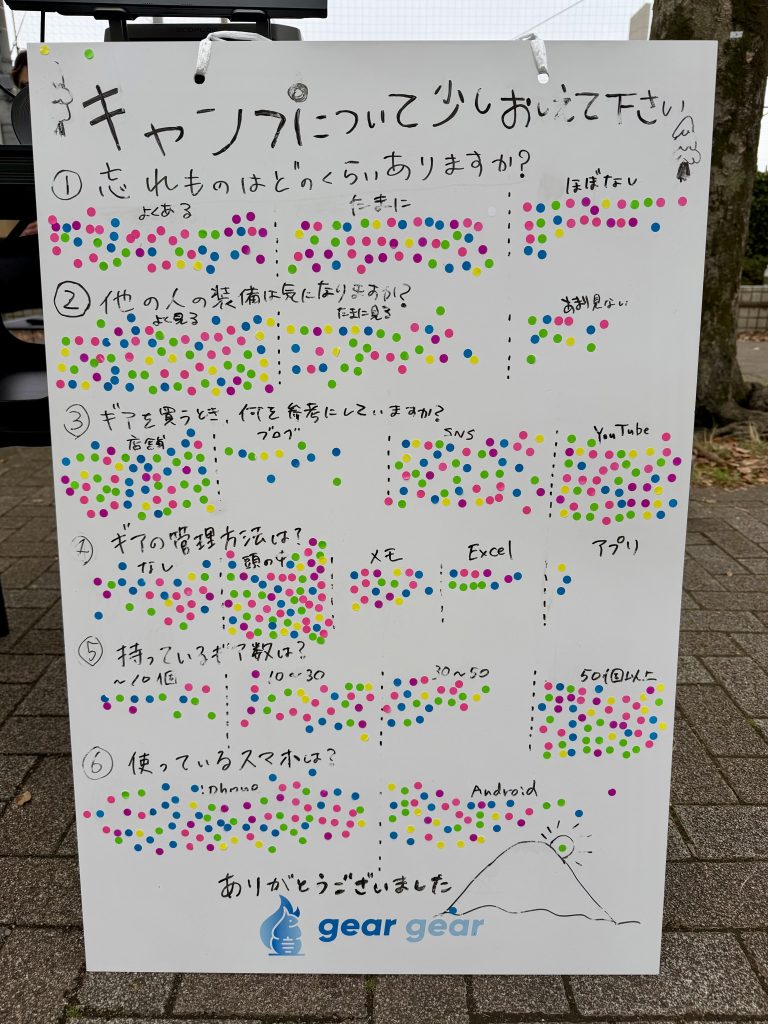 キャンプについて少しおしえて下さい
① 忘れものはどのくらいありますか?
よくある たまに ほぼなし
② 他の人の装備は気になりますか?
よく見る たまに見る あまり見ない
③ ギアを買うとき、何を参考にしていますか?
店舗 ブログ SNS YouTube
④ ギアの管理方法は?
なし 頭の中 メモ Excel アプリ
⑤ 持っているギア数は?
~10個 10~30 30~50 50個以上
⑥ 使っているスマホは?
iPhone Android
ありがとうございました
gear gear